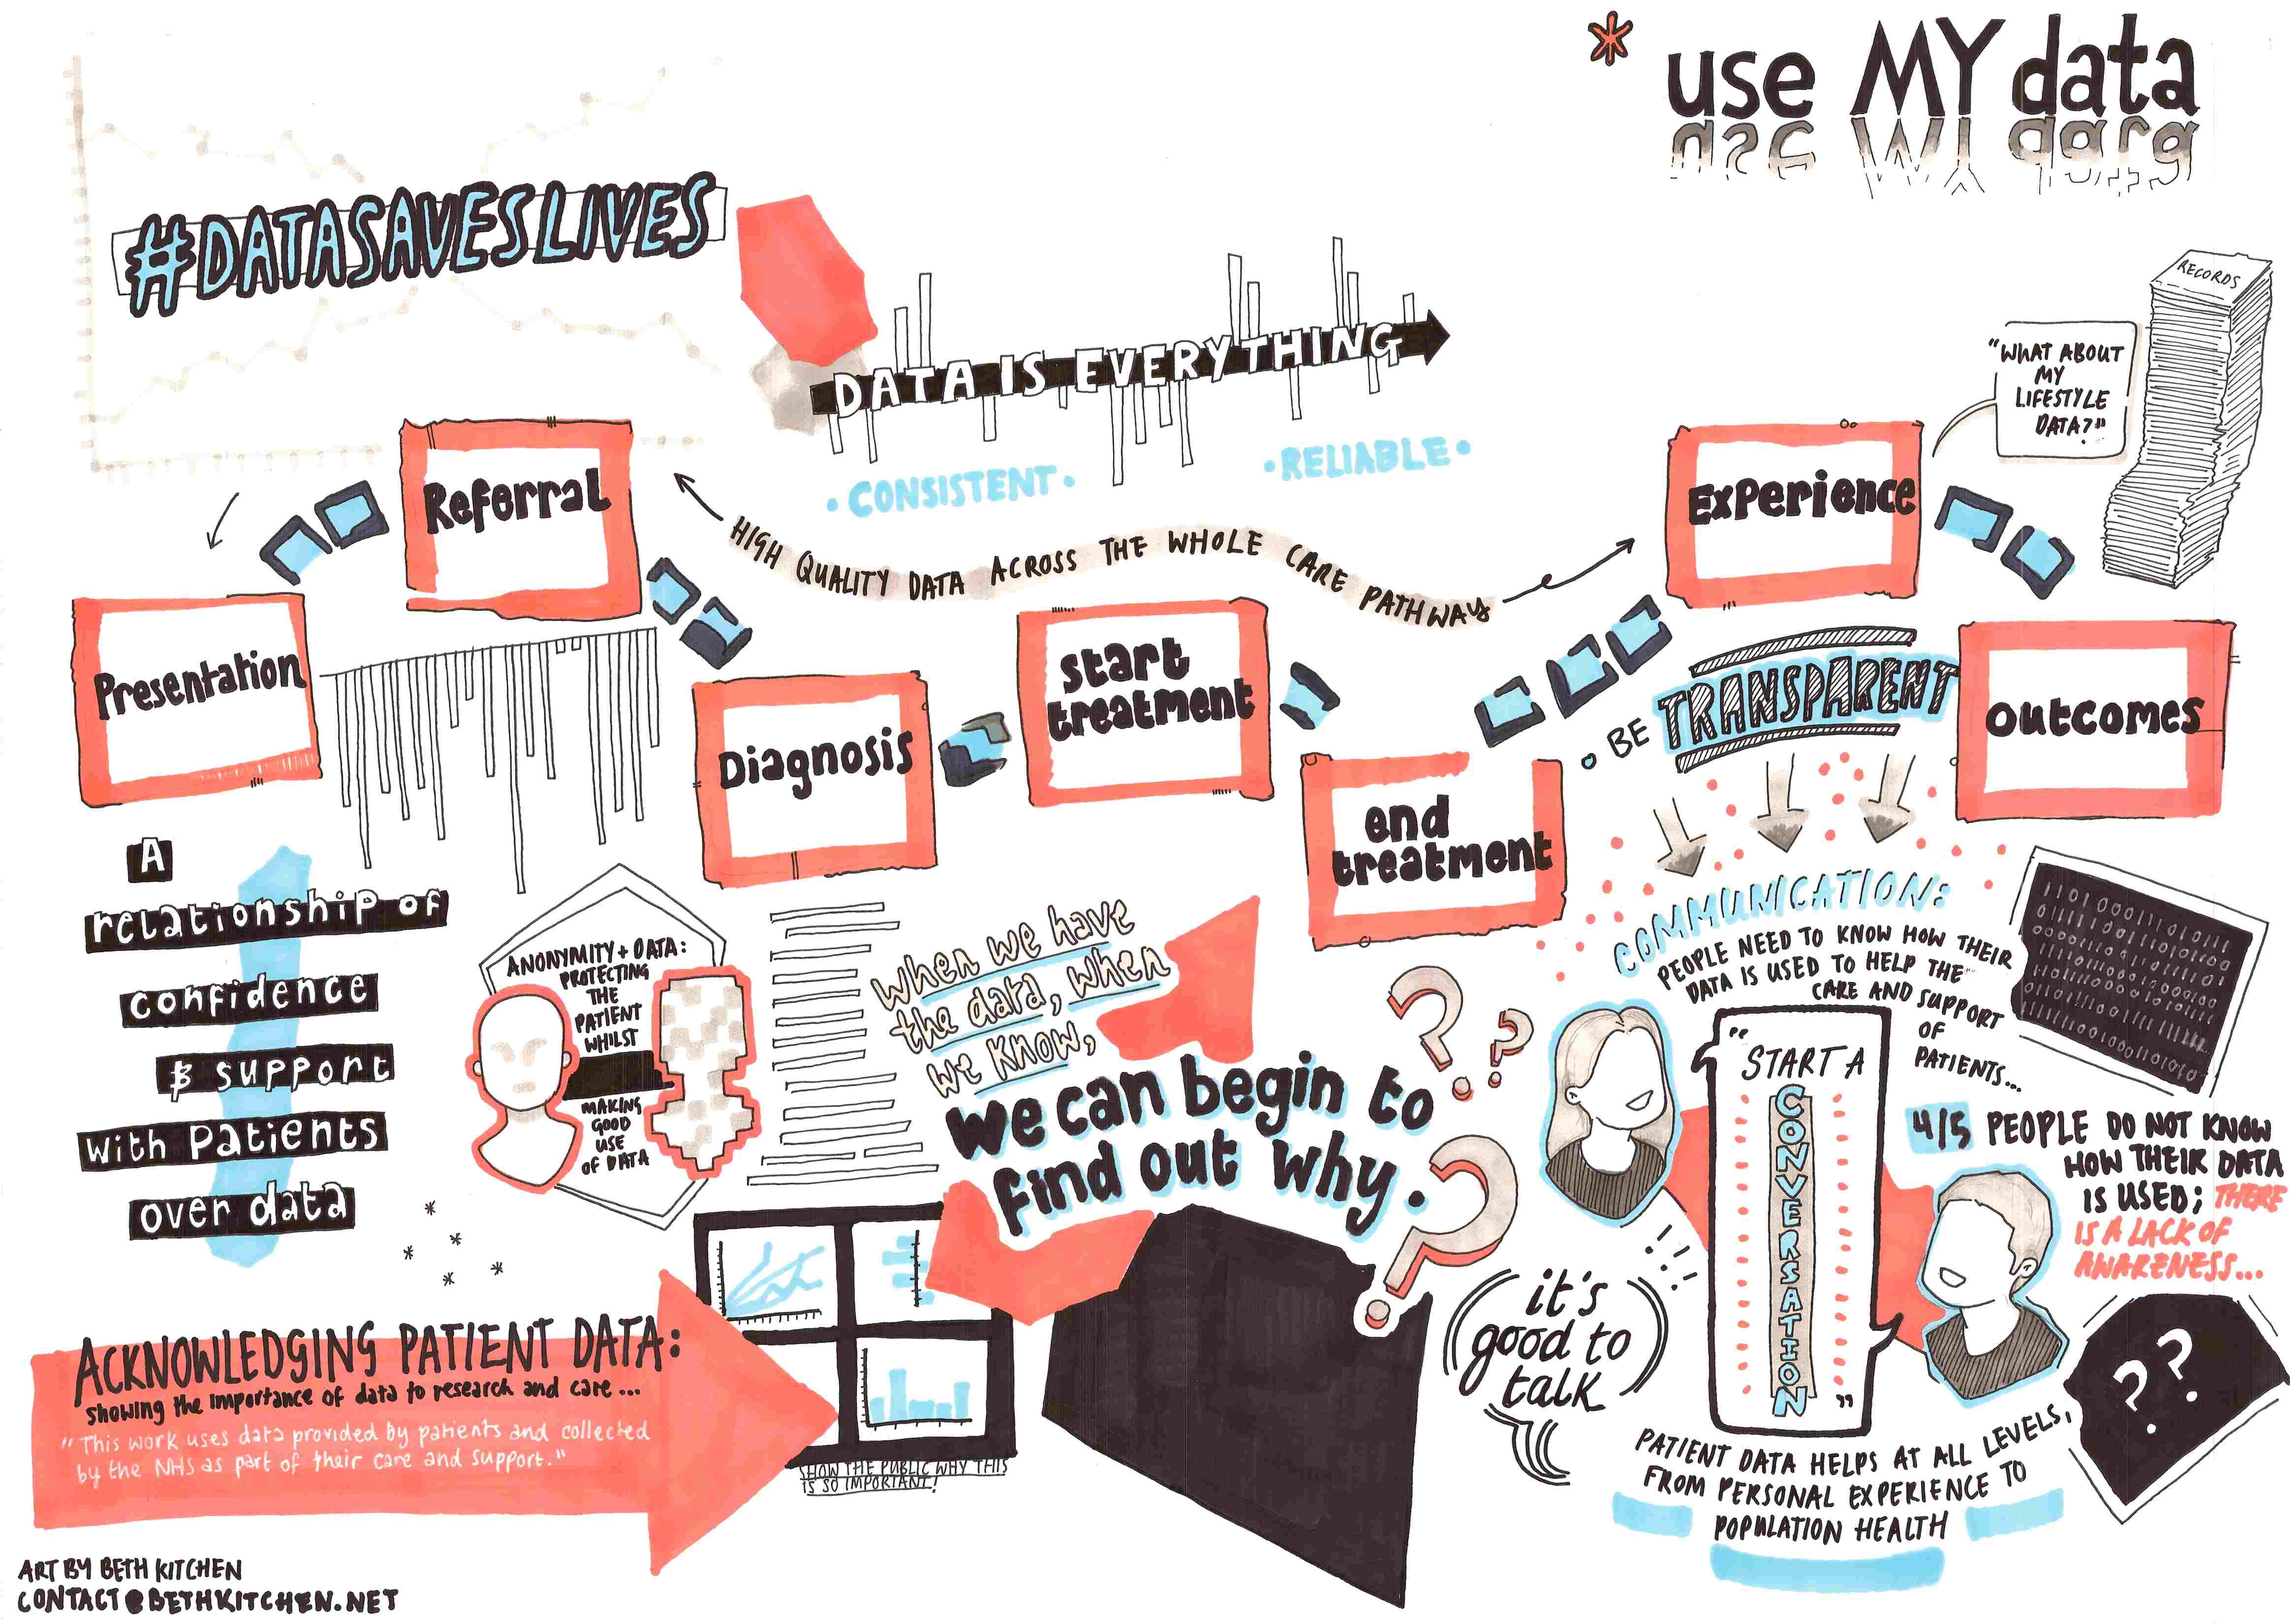 * use MY data
#DATASAVESLIVES
DATA IS EVERYTHING
• CONSISTENT •
• RELIABLE •
RECORDS
"WHAT ABOUT
MY
LIFESTYLE
DATA?"
HIGH QUALITY DATA ACROSS THE WHOLE CARE PATHWAY
Presentation
Referral
Diagnosis
start
treatment
end
treatment
Experience
outcomes
• BE TRANSPARENT
A
relationship of
confidence
& support
with patients
over data
ANONYMITY + DATA:
PROTECTING
THE
PATIENT
WHILST
MAKING
GOOD
USE
OF DATA
When we have
the data, when
we know,
we can begin to
find out why.
? ? ?
COMMUNICATION:
PEOPLE NEED TO KNOW HOW THEIR
DATA IS USED TO HELP THE
CARE AND SUPPORT
OF
PATIENTS...
"START A
CONVERSATION"
4/5 PEOPLE DO NOT KNOW
HOW THEIR DATA
IS USED; THERE
IS A LACK OF
AWARENESS...
!!!
it's
good to
talk
??
PATIENT DATA HELPS AT ALL LEVELS,
FROM PERSONAL EXPERIENCE TO
POPULATION HEALTH
ACKNOWLEDGING PATIENT DATA:
showing the importance of data to research and care...
"This work uses data provided by patients and collected
by the NHS as part of their care and support."
SHOW THE PUBLIC WHY THIS
IS SO IMPORTANT!
ART BY BETH KITCHEN
CONTACT@BETHKITCHEN.NET